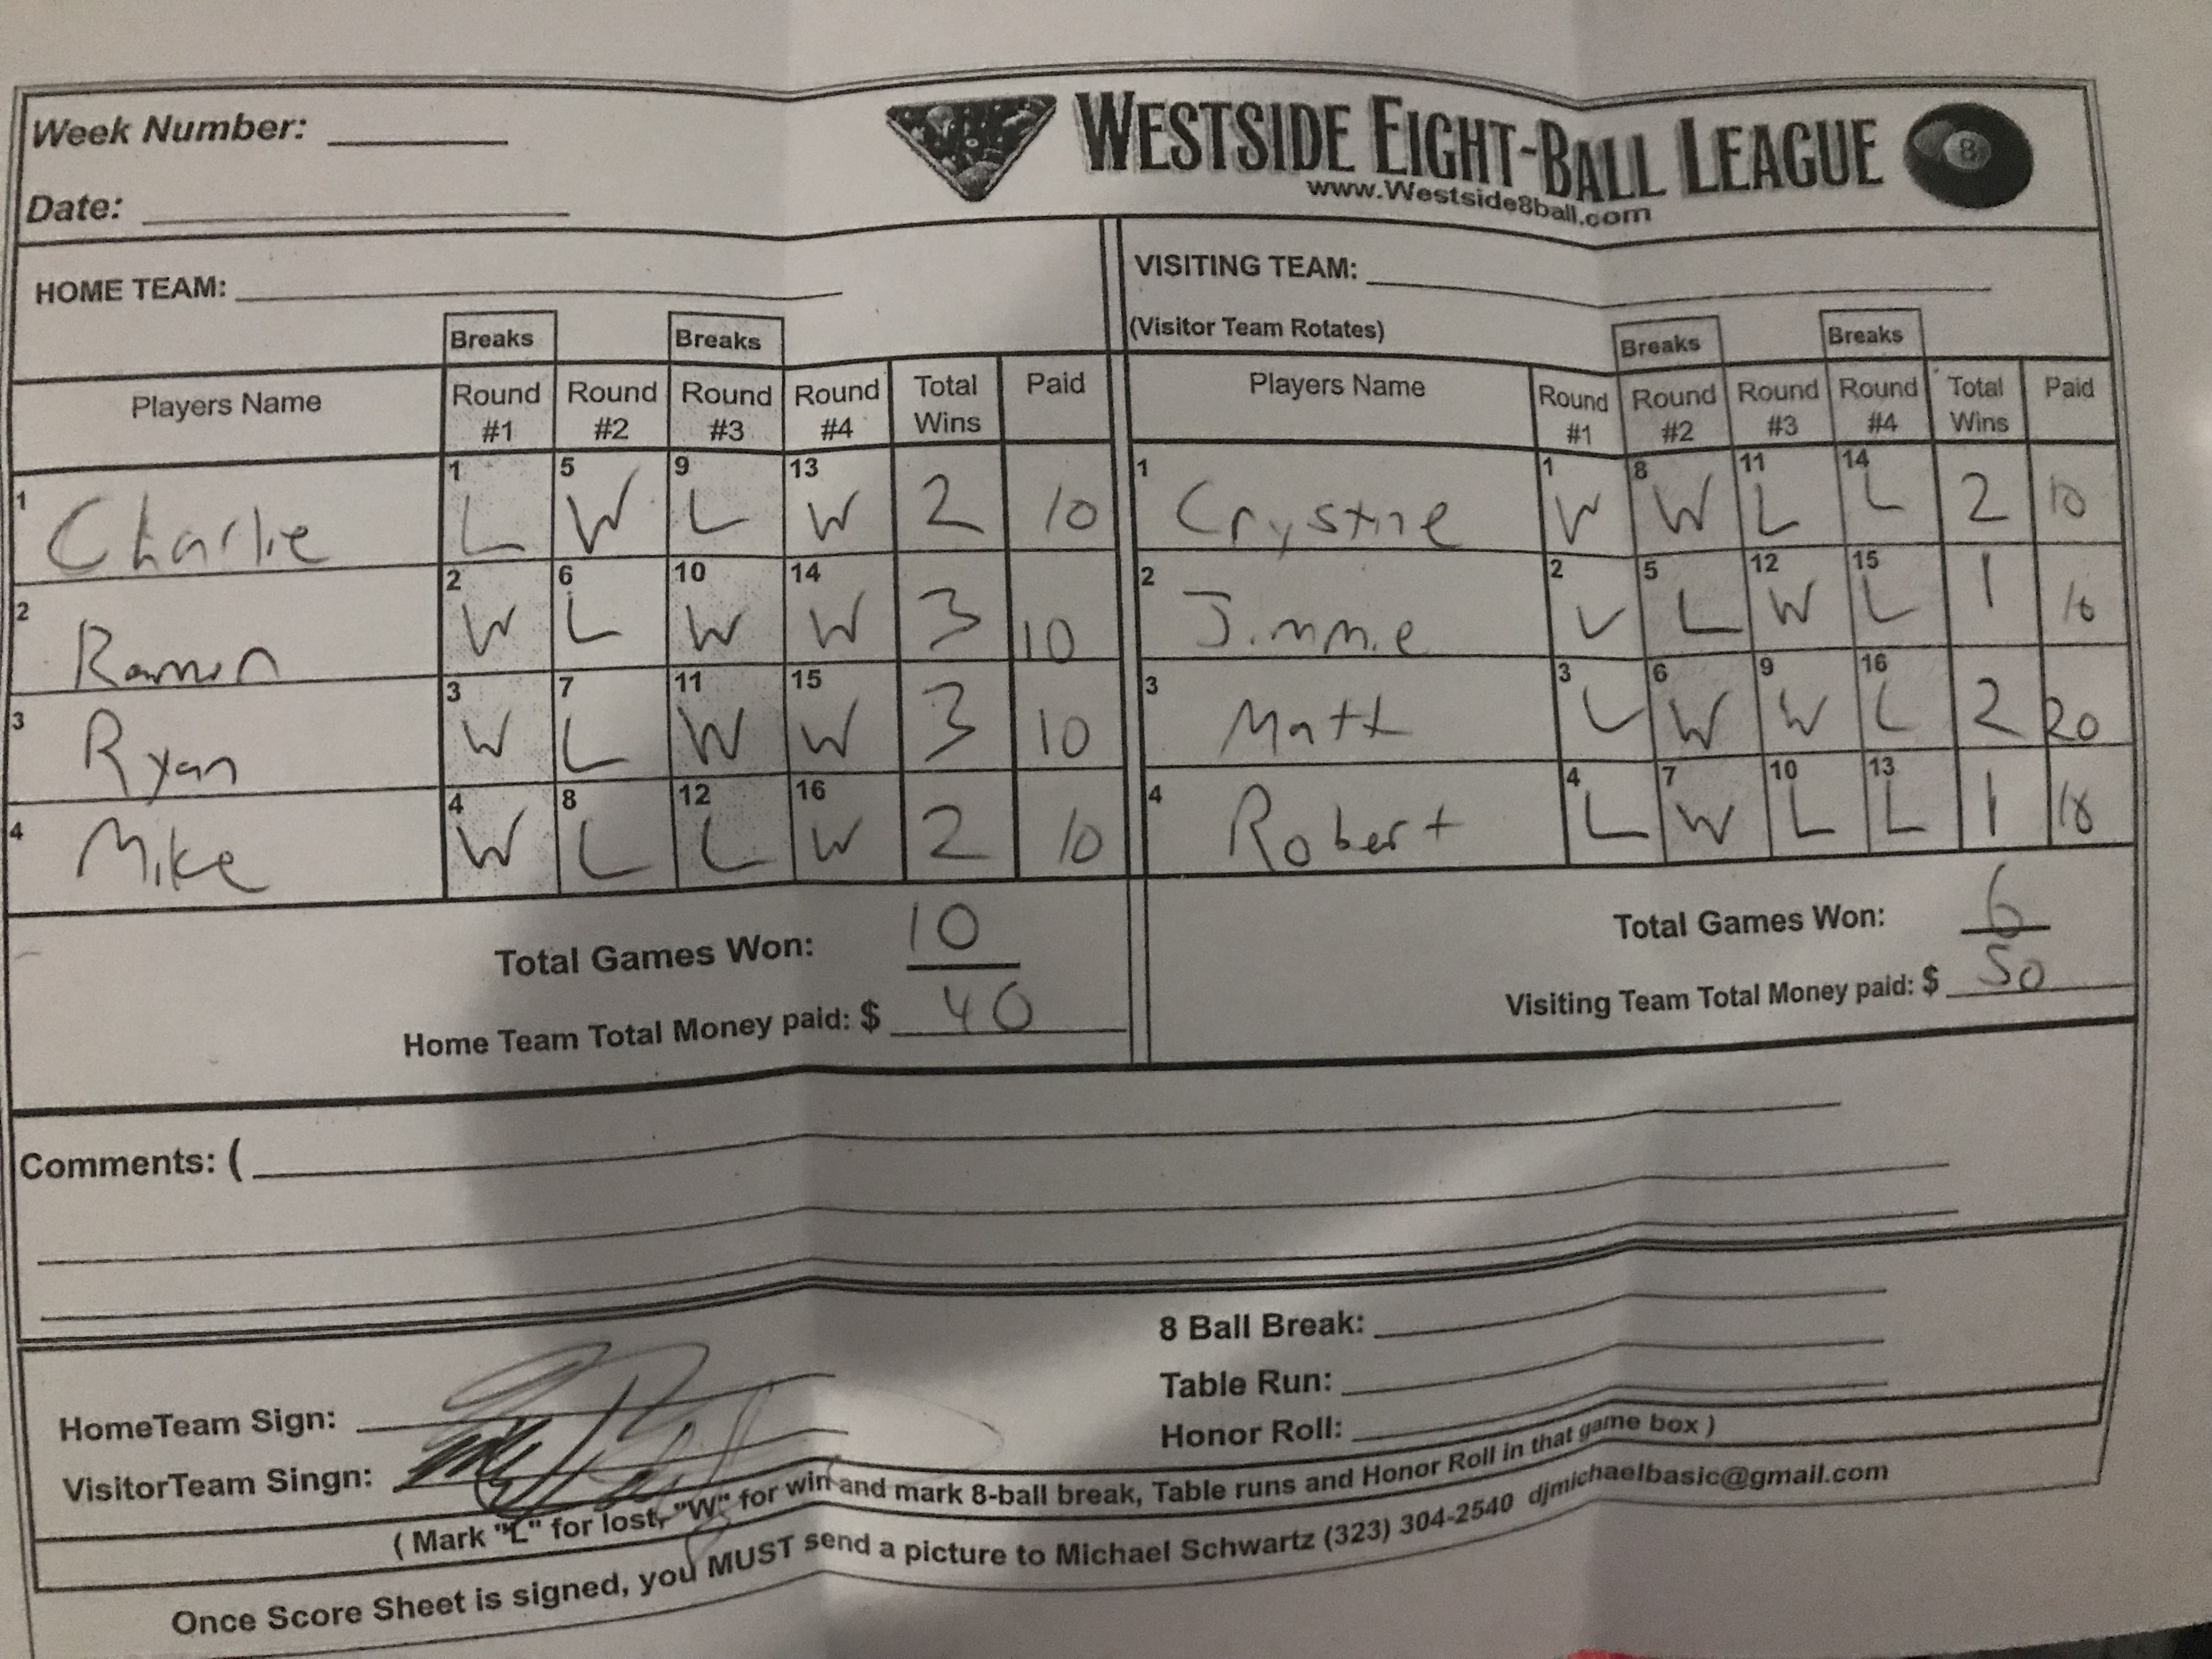 Week Number:
WESTSIDE EIGHT-BALL LEAGUE 8
www.Westside8ball.com
Date:
HOME TEAM:
VISITING TEAM:
(Visitor Team Rotates)
Breaks Breaks
Breaks Breaks
Players Name Round #1 Round #2 Round #3 Round #4 Total Wins Paid
1 Charlie 1 L 5 W 9 L 13 W 2 10
2 Ramon 2 W 6 L 10 W 14 W 3 10
3 Ryan 3 W 7 L 11 W 15 W 3 10
4 Mike 4 W 8 L 12 L 16 W 2 10
Total Games Won: 10
Home Team Total Money paid: $ 40
Players Name Round #1 Round #2 Round #3 Round #4 Total Wins Paid
1 Crystne 1 W 8 W 11 L 14 L 2 10
2 Jimmie 2 L 5 L 12 W 15 L 1 10
3 Matt 3 L 6 W 9 W 16 L 2 20
4 Robert 4 L 7 W 10 L 13 L 1 10
Total Games Won: 6
Visiting Team Total Money paid: $ 50
Comments: (
8 Ball Break:
Table Run:
Honor Roll:
HomeTeam Sign:
VisitorTeam Singn:
( Mark "L" for lost, "W" for win and mark 8-ball break, Table runs and Honor Roll in that game box )
Once Score Sheet is signed, you MUST send a picture to Michael Schwartz (323) 304-2540 djmichaelbasic@gmail.com